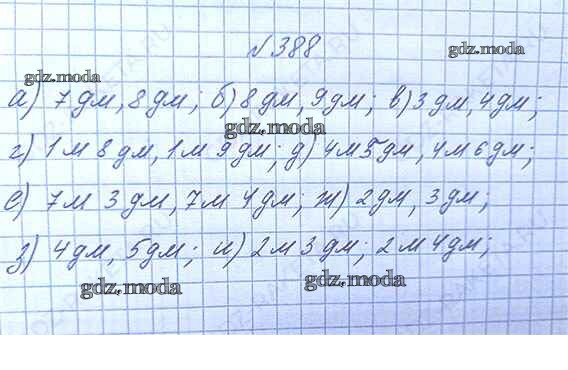 №388
gdz.moda
gdz.moda
а) 7 дм, 8 дм; б) 8 дм, 9 дм; в) 3 дм, 4 дм;
gdz.moda
г) 1 м 8 дм, 1 м 9 дм; д) 4 м 5 дм, 4 м 6 дм;
е) 7 м 3 дм, 7 м 4 дм; ж) 2 дм, 3 дм;
з) 4 дм, 5 дм; и) 2 м 3 дм; 2 м 4 дм;
gdz.moda
gdz.moda